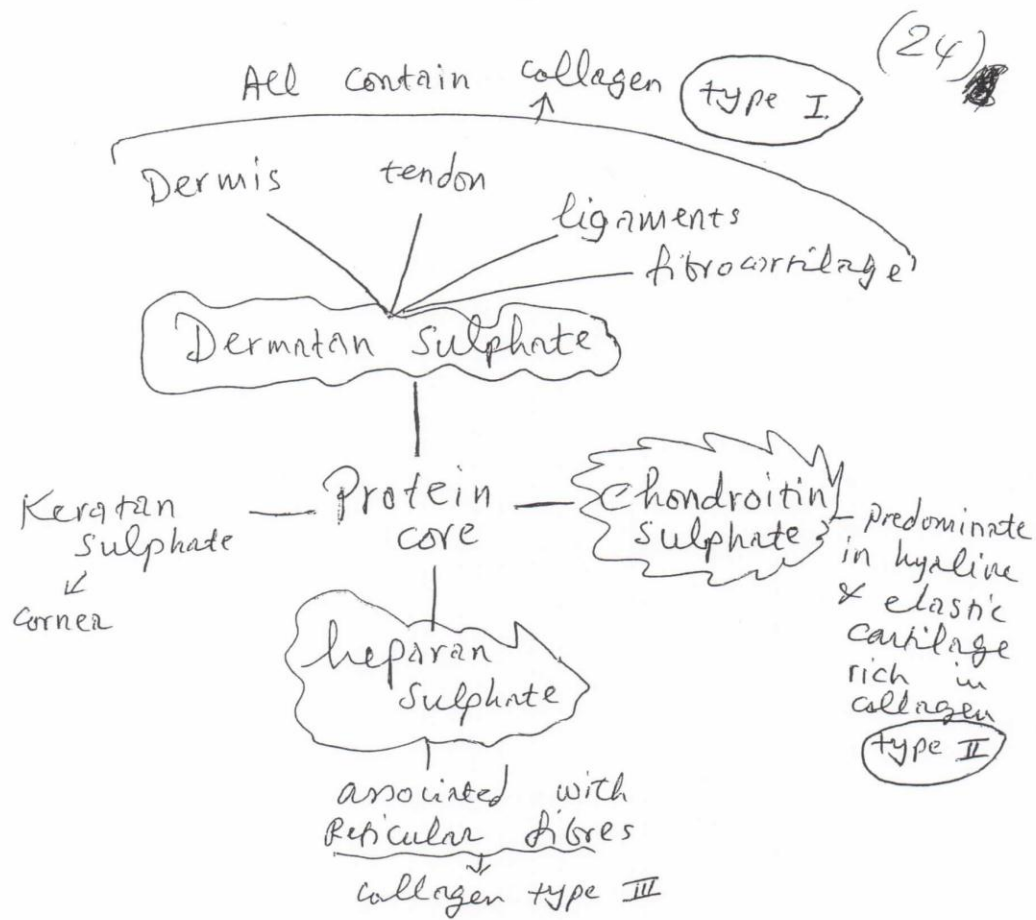 (24)
All contain collagen type I.
Dermis
tendon
ligaments
fibrocartilage
Dermatan Sulphate
Keratan
Sulphate
cornea
Protein
core
Chondroitin
Sulphate
predominate
in hyaline
& elastic
cartilage
rich in
collagen
type II
heparan
Sulphate
associated with
Reticular fibres
collagen type III